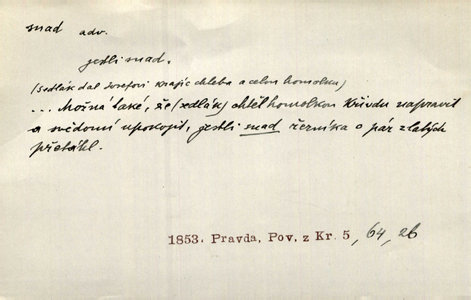 snad adv.
jestli snad.
(Sedlák dal Josefovi krajíc chleba a celou homolku)
... Možná také, že (sedlák) chtěl homolkou křivdu napravit
a svědomí upokojit, jestli snad řezníka o pár zlatých
přetáhl.
1853. Pravda, Pov. z Kr. 5, 64, 26